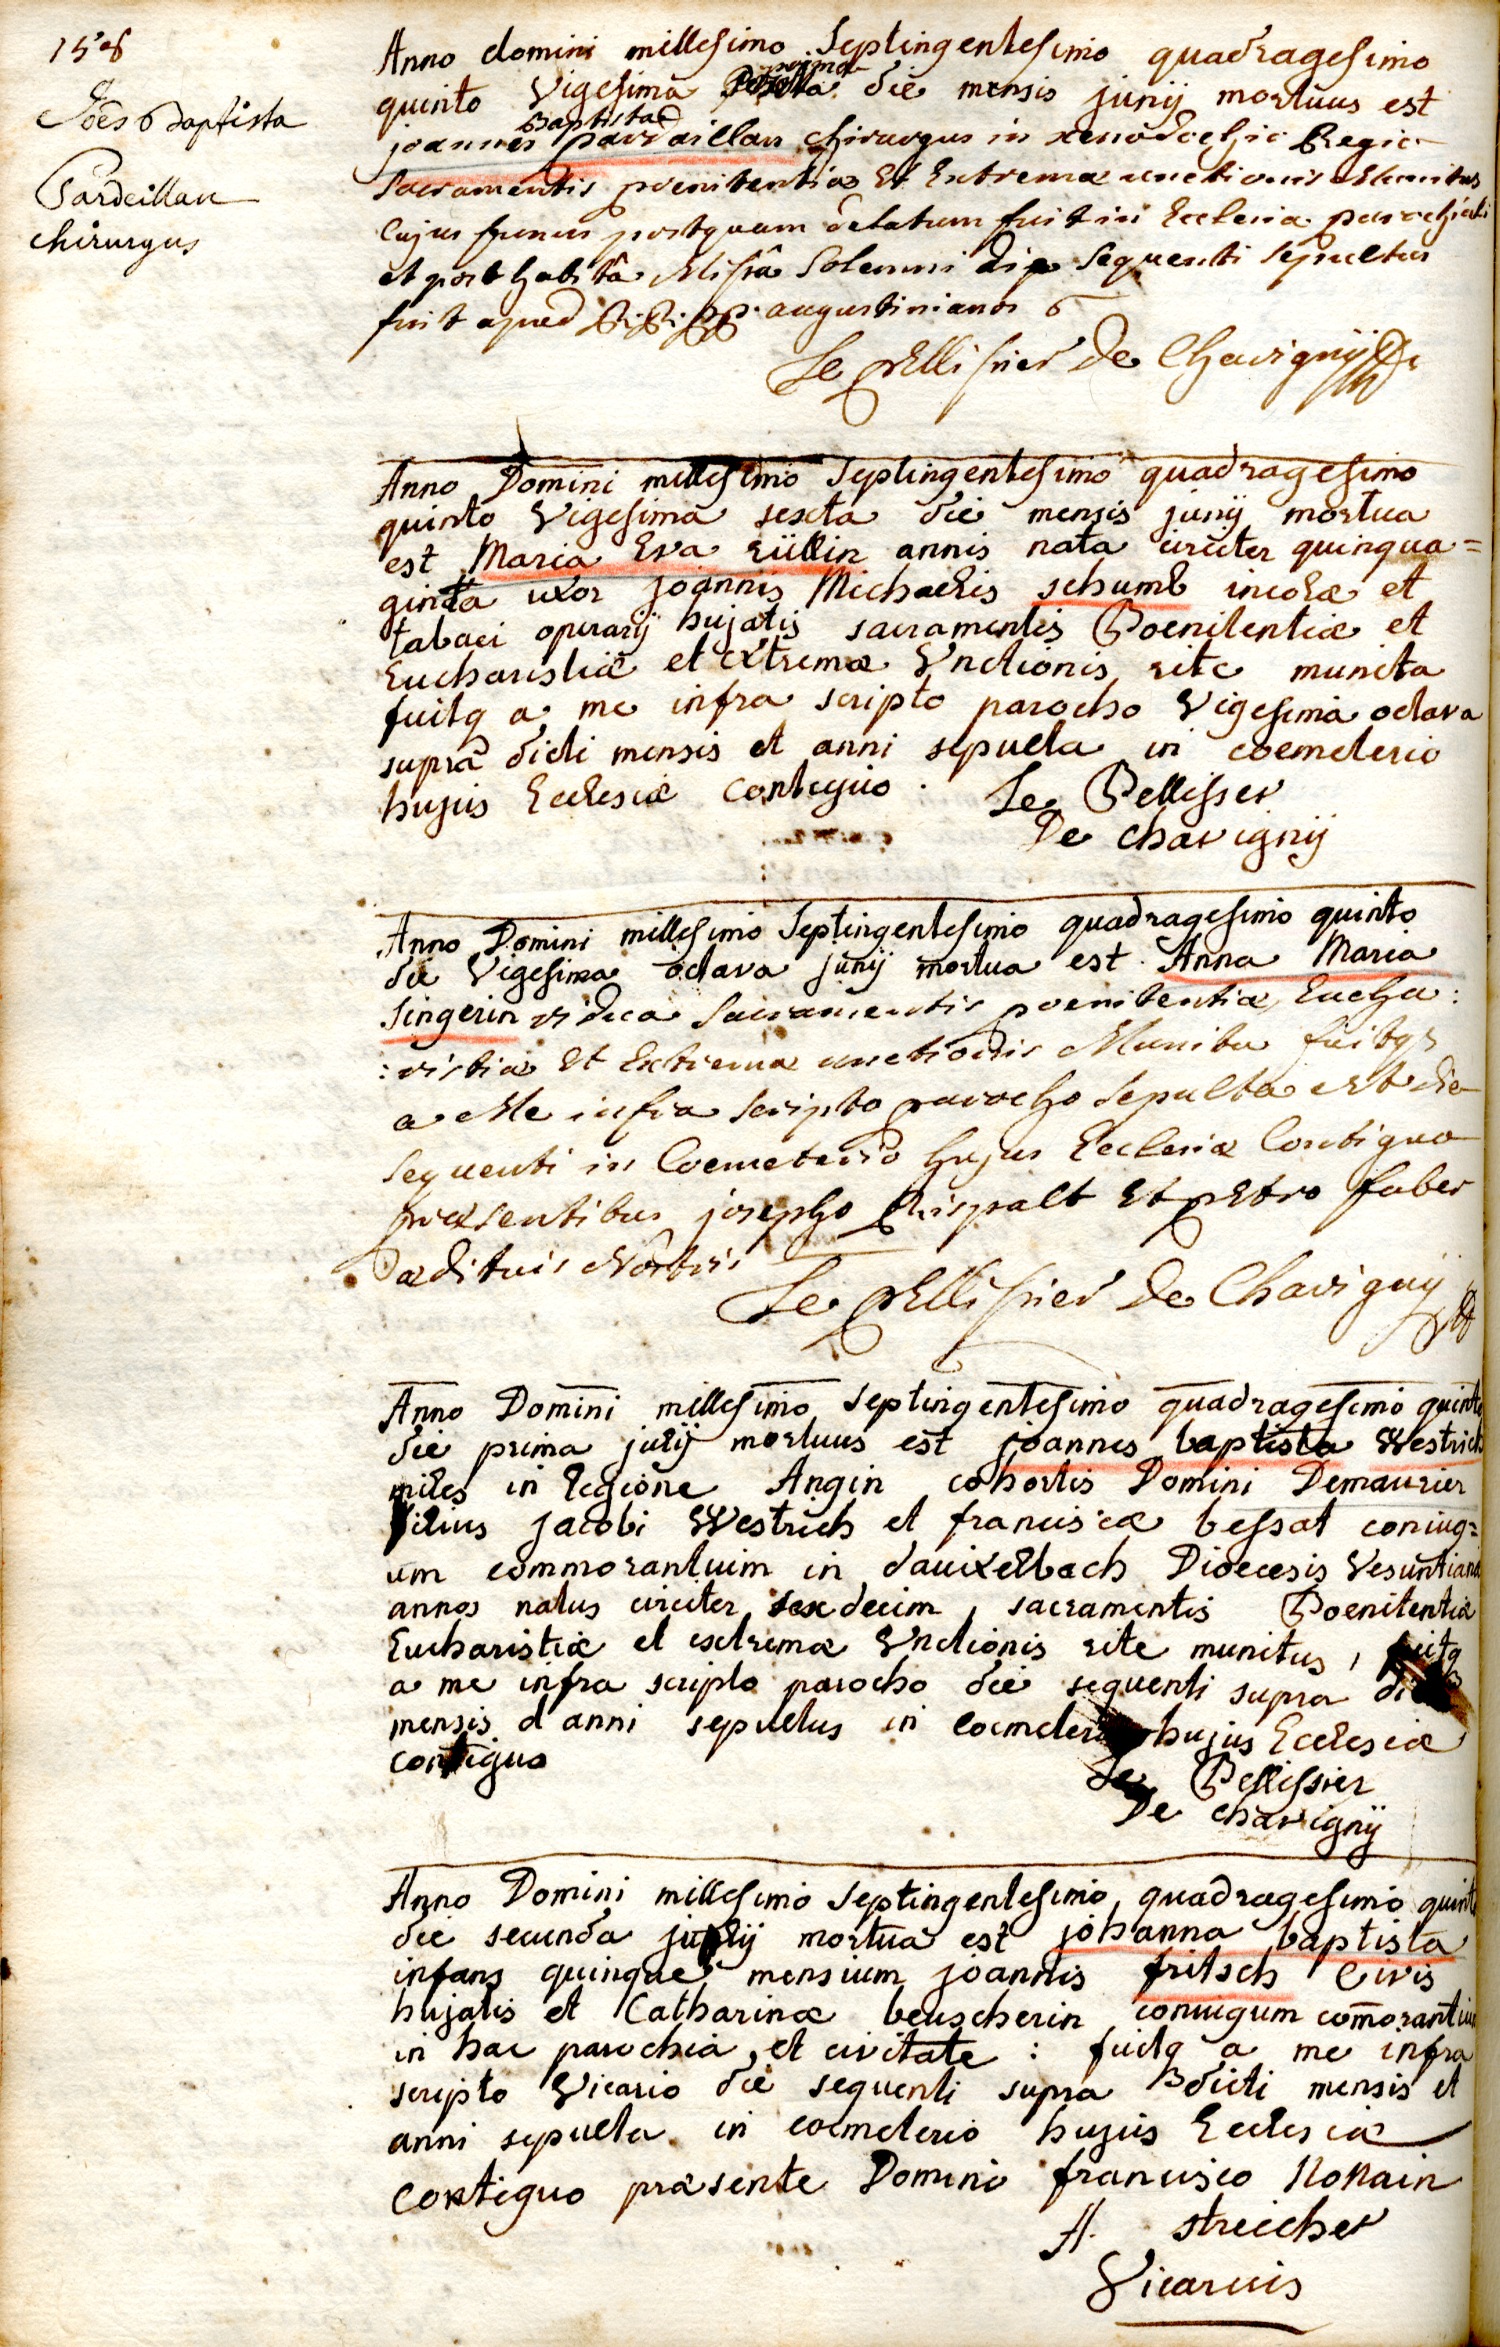 Joẽs Baptista
Pardeillan
chirurgus
Anno domini millesimo Septingentesimo quadragesimo
prima
quinto Vigesima die mensis junij mortuus est
Baptista
joannes pardaillan chirurgus in xenodochio Regio
sacramentis poenitentiæ Et Extremæ unctionis Munitus
Cujus funus postquam delatum fuit in Ecclesia parochiali
et post habitâ Missâ Solemni die Sequenti Sepultus
fuit apud R.R. P.P. augustinianos
Le pEllissier De Chavignij
Anno Domini millesimo Septingentesimo quadragesimo
quinto Vigesima sexta die mensis junij mortua
est Maria Eva rüllin annis nata circiter quinqua=
ginta uxor joannis Michaelis schumb incolæ et
tabaci operarij hujatis sacramentis Poenitentiæ et
Eucharistiæ et extremæ Unctionis rite munita
fuitq a me infra scripto parocho Vigesima octava
supra dicti mensis et anni sepulta in coemeterio
hujus Ecclesiæ contiguo . Le Pellissier
De chavignij
Anno Domini millesimo Septingentesimo quadragesimo quinto
die Vigesima octava junij mortua est Anna Maria
Singerin vidua Sacramentis poenitentiæ, Eucha:
:ristiæ Et Extremæ unctionis Munita fuitqz
a Me infra scripto parocho Sepulta est die
sequenti in Coemeterio hujus Ecclesiæ Contiguo
præsentibus josepho Rispalt Et pEtro faber
ædituis Nostris
Le pEllissier De Chavignij
Anno Domini millesimo Septingentesimo quadragesimo quinto
die prima julij mortuus est joannes baptista Westrich
miles in legione Angin cohortis Domini Demaurier
filius jacobi Westrich et franciscæ bessat coniug=
um commorantium in dauixelbach Dioecesis Vesuntianæ
annos natus circiter sexdecim, sacramentis Poenitentiæ
Eucharistiæ et extremæ Unctionis rite munitus, fuitq
a me infra scripto parocho die sequenti supra
mensis et anni sepultus in coemeterio hujus Ecclesiæ
contiguo
Le Pellissier
De chavignij
Anno Domini millesimo Septingentesimo, quadragesimo quinto
die secunda julij mortua est johanna baptista
infans quinque mensium joannis fritsch Civis
hujatis et Catharinæ beuscherin coniugum com̄orantium
in hac parochia, et civitate : fuitq a me infra
scripto Vicario die sequenti supra dicti mensis et
anni sepulta in coemeterio hujus Ecclesiæ
contiguo præsente Domino francisco Nonnain
A. streicher
Vicarius